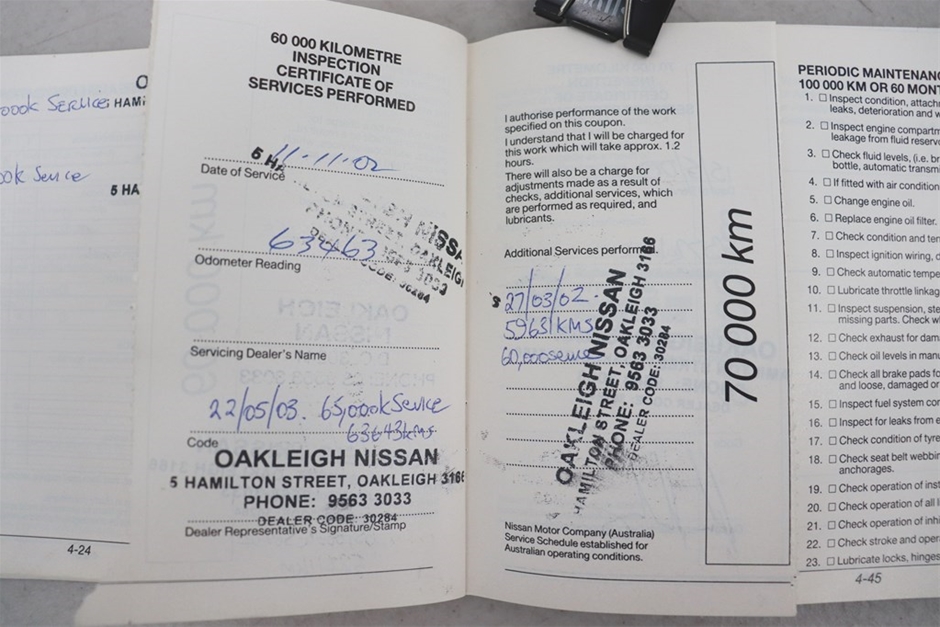 000k Service HAMI
00k Service
5 HA
4-24
60 000 KILOMETRE
INSPECTION
CERTIFICATE OF
SERVICES PERFORMED
5 HA 11.11.02
Date of Service
OAKLEIGH NISSA
HAMILTON STREET, OAKLEIGH
PHONE: 9563 3033
DEALER CODE: 30284
63463
Odometer Reading
Servicing Dealer's Name
22/05/03. 65,000k Service
63643kms
Code
OAKLEIGH NISSAN
5 HAMILTON STREET, OAKLEIGH 3166
PHONE: 9563 3033
DEALER CODE: 30284
Dealer Representative's Signature/Stamp
I authorise performance of the work
specified on this coupon.
I understand that I will be charged for
this work which will take approx. 1.2
hours.
There will also be a charge for
adjustments made as a result of
checks, additional services, which
are performed as required, and
lubricants.
Additional Services performed
27/03/02.
5963 KMS
60,000 service
OAKLEIGH NISSAN
HAMILTON STREET, OAKLEIGH 3166
PHONE: 9563 3033
DEALER CODE: 30284
Nissan Motor Company (Australia)
Service Schedule established for
Australian operating conditions.
70 000 km
PERIODIC MAINTENANC
100 000 KM OR 60 MONT
1. ☐ Inspect condition, attachm
leaks, deterioration and w
2. ☐ Inspect engine compartm
leakage from fluid reservo
3. ☐ Check fluid levels, (i.e. br
bottle, automatic transmi
4. ☐ If fitted with air condition
5. ☐ Change engine oil.
6. ☐ Replace engine oil filter.
7. ☐ Check condition and ten
8. ☐ Inspect ignition wiring, d
9. ☐ Check automatic tempe
10. ☐ Lubricate throttle linkag
11. ☐ Inspect suspension, ste
missing parts. Check wh
12. ☐ Check exhaust for dam
13. ☐ Check oil levels in manu
14. ☐ Check all brake pads fo
and loose, damaged or
15. ☐ Inspect fuel system con
16. ☐ Inspect for leaks from e
17. ☐ Check condition of tyre
18. ☐ Check seat belt webbin
anchorages.
19. ☐ Check operation of inst
20. ☐ Check operation of all l
21. ☐ Check operation of inhi
22. ☐ Check stroke and opera
23. ☐ Lubricate locks, hinges
4-45